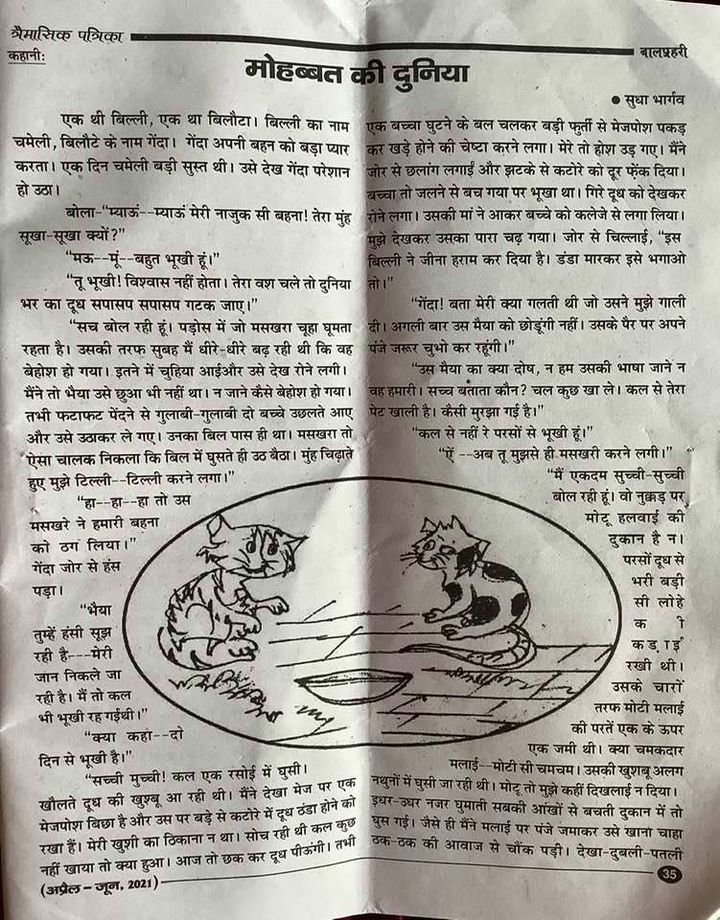 त्रैमासिक पत्रिका
बालप्रहरी
कहानी:
मोहब्बत की दुनिया
● सुधा भार्गव
एक थी बिल्ली, एक था बिलौटा। बिल्ली का नाम
चमेली, बिलौटे के नाम गेंदा। गेंदा अपनी बहन को बड़ा प्यार
करता। एक दिन चमेली बड़ी सुस्त थी। उसे देख गेंदा परेशान
हो उठा।
बोला-“म्याऊं--म्याऊं मेरी नाजुक सी बहना! तेरा मुंह
सूखा-सूखा क्यों?”
“मऊ--मूं--बहुत भूखी हूं।”
“तू भूखी! विश्वास नहीं होता। तेरा वश चले तो दुनिया
भर का दूध सपासप सपासप गटक जाए।”
“सच बोल रही हूं। पड़ोस में जो मसखरा चूहा घूमता
रहता है। उसकी तरफ सुबह मैं धीरे-धीरे बढ़ रही थी कि वह
बेहोश हो गया। इतने में चुहिया आईऔर उसे देख रोने लगी।
मैंने तो भैया उसे छुआ भी नहीं था। न जाने कैसे बेहोश हो गया।
तभी फटाफट पेंदने से गुलाबी-गुलाबी दो बच्चे उछलते आए
और उसे उठाकर ले गए। उनका बिल पास ही था। मसखरा तो
ऐसा चालक निकला कि बिल में घुसते ही उठ बैठा। मुंह चिढ़ाते
हुए मुझे टिल्ली--टिल्ली करने लगा।”
“हा--हा--हा तो उस
मसखरे ने हमारी बहना
को ठग लिया।”
गेंदा जोर से हंस
पड़ा।
“भैया
तुम्हें हंसी सूझ
रही है---मेरी
जान निकले जा
रही है। मैं तो कल
भी भूखी रह गईथी।”
“क्या कहा--दो
दिन से भूखी है।”
“सच्ची मुच्ची! कल एक रसोई में घुसी।
खौलते दूध की खुश्बू आ रही थी। मैंने देखा मेज पर एक
मेजपोश बिछा है और उस पर बड़े से कटोरे में दूध ठंडा होने को
रखा हैं। मेरी खुशी का ठिकाना न था। सोच रही थी कल कुछ
नहीं खाया तो क्या हुआ। आज तो छक कर दूध पीऊंगी। तभी
एक बच्चा घुटने के बल चलकर बड़ी फुर्ती से मेजपोश पकड़
कर खड़े होने की चेष्टा करने लगा। मेरे तो होश उड़ गए। मैंने
जोर से छलांग लगाई और झटके से कटोरे को दूर फ़ेंक दिया।
बच्चा तो जलने से बच गया पर भूखा था। गिरे दूध को देखकर
रोने लगा। उसकी मां ने आकर बच्चे को कलेजे से लगा लिया।
मुझे देखकर उसका पारा चढ़ गया। जोर से चिल्लाई, “इस
बिल्ली ने जीना हराम कर दिया है। डंडा मारकर इसे भगाओ
तो।”
“गेंदा! बता मेरी क्या गलती थी जो उसने मुझे गाली
दी। अगली बार उस मैया को छोडूंगी नहीं। उसके पैर पर अपने
पंजे जरूर चुभो कर रहूंगी।”
“उस मैया का क्या दोष, न हम उसकी भाषा जाने न
वह हमारी। सच्च बताता कौन? चल कुछ खा ले। कल से तेरा
पेट खाली है। कैसी मुरझा गई है।”
“कल से नहीं रे परसों से भूखी हूं।”
“ऐं --अब तू मुझसे ही मसखरी करने लगी।”
“मैं एकदम सुच्ची-सुच्ची
बोल रही हूं। वो नुक्कड़ पर
मोटू हलवाई की
दुकान है न।
परसों दूध से
भरी बड़ी
सी लोहे
क ो
कड़ाई
रखी थी।
उसके चारों
तरफ मोटी मलाई
की परतें एक के ऊपर
एक जमी थी। क्या चमकदार
मलाई--मोटी सी चमचम। उसकी खुशबू अलग
नथुनों में घुसी जा रही थी। मोटू तो मुझे कहीं दिखलाई न दिया।
इधर-उधर नजर घुमाती सबकी आंखों से बचती दुकान में तो
घुस गई। जैसे ही मैंने मलाई पर पंजे जमाकर उसे खाना चाहा
ठक-ठक की आवाज से चौंक पड़ी। देखा-दुबली-पतली
(अप्रैल – जून, 2021)
35